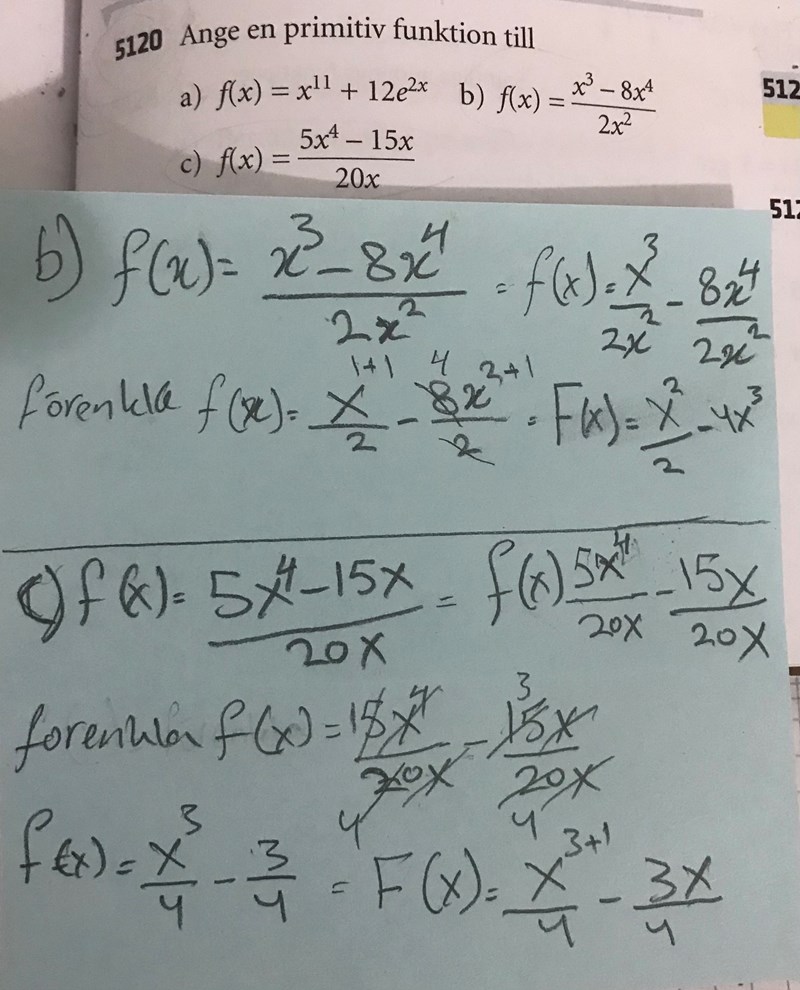 5120 Ange en primitiv funktion till
a) f(x) = x¹¹ + 12e²ˣ b) f(x) = (x³ – 8x⁴)/(2x²)
512
c) f(x) = (5x⁴ – 15x)/(20x)
512
b) f(x) = (x³ - 8x⁴)/(2x²) = f(x) = x³/(2x²) - 8x⁴/(2x²)
förenkla f(x) = x¹⁺¹/2 - 8x²⁺¹/2 4 = F(x) = x²/2 - 4x³
c) f(x) = (5x⁴ - 15x)/(20x) = f(x) 5x⁴/(20x) - 15x/(20x)
forenkla f(x) = 15x⁴/(20x) 4 - 3 15x/(20x) 4
f(x) = x³/4 - 3/4 = F(x) = x³⁺¹/4 - 3x/4